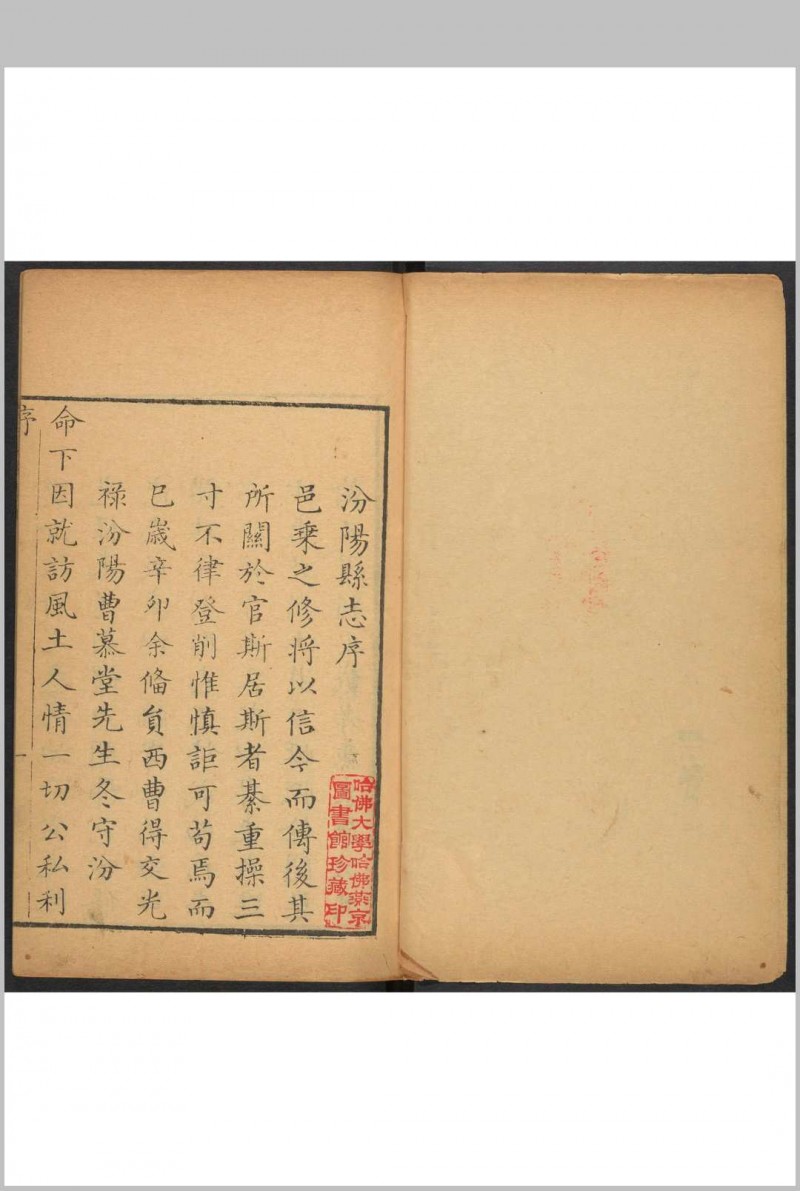 汾陽縣志序
邑乗之修将以信今而傳後其
所關於官斯居斯者綦重操三
寸不律登削惟慎詎可苟焉而
已嵗辛卯余偹貟西曹得交光
禄汾陽曹慕堂先生冬守汾
命下因就訪風土人情一切公私利
序
一
哈佛大學哈佛燕京
圖書館珍藏印